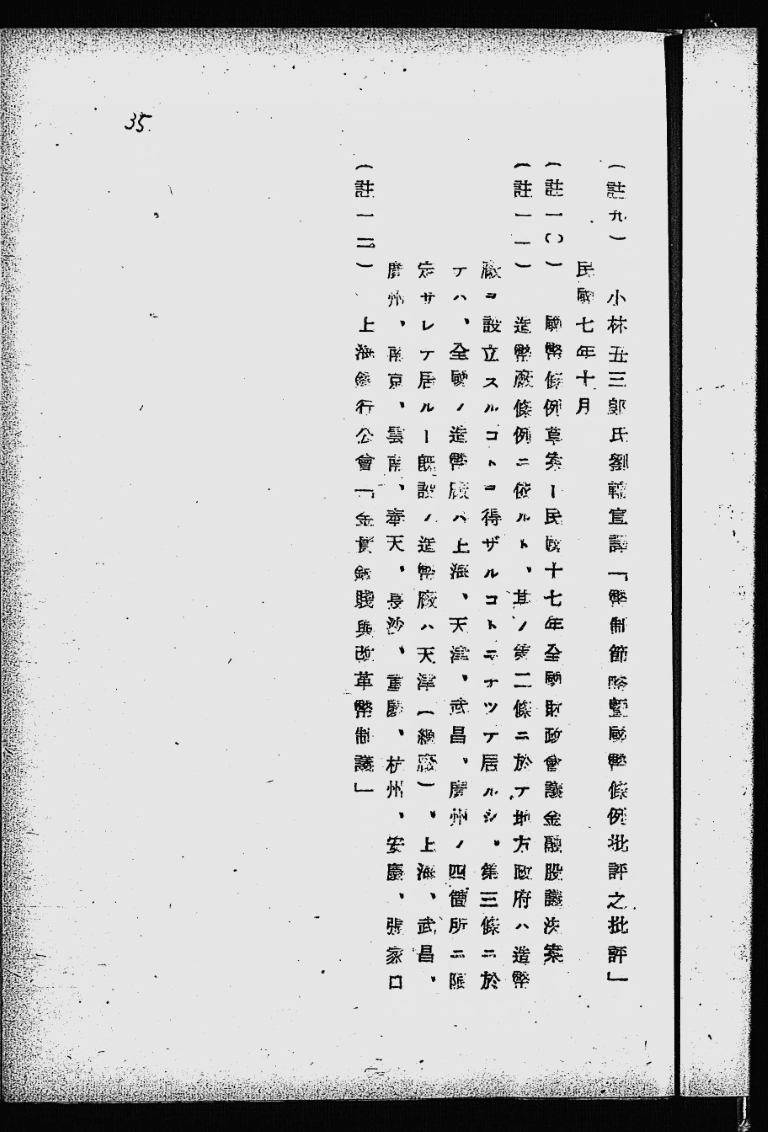 35
(註九) 小林五三郎氏劉轄宣譯「幣制節略曁國幣條例批評之批評」
民國七年十月
(註一〇) 國幣條例草案ー民國十七年全國財政會議金融股議決案
(註一一) 造幣廠條例ニ依ルト、其ノ第二條ニ於テ地方政府ハ造幣
廠ヲ設立スルコトヲ得ザルコトニナツテ居ルシ、第三條ニ於
テハ、全國ノ造幣廠ハ上海、天津、武昌、廣州ノ四箇所ニ限
定サレテ居ルー既設ノ造幣廠ハ天津(總廠)、上海、武昌、
廣州、南京、雲南、奉天、長沙、重慶、杭州、安慶、張家口
(註一二) 上海銀行公會「金貴銀賤與改革幣制議」